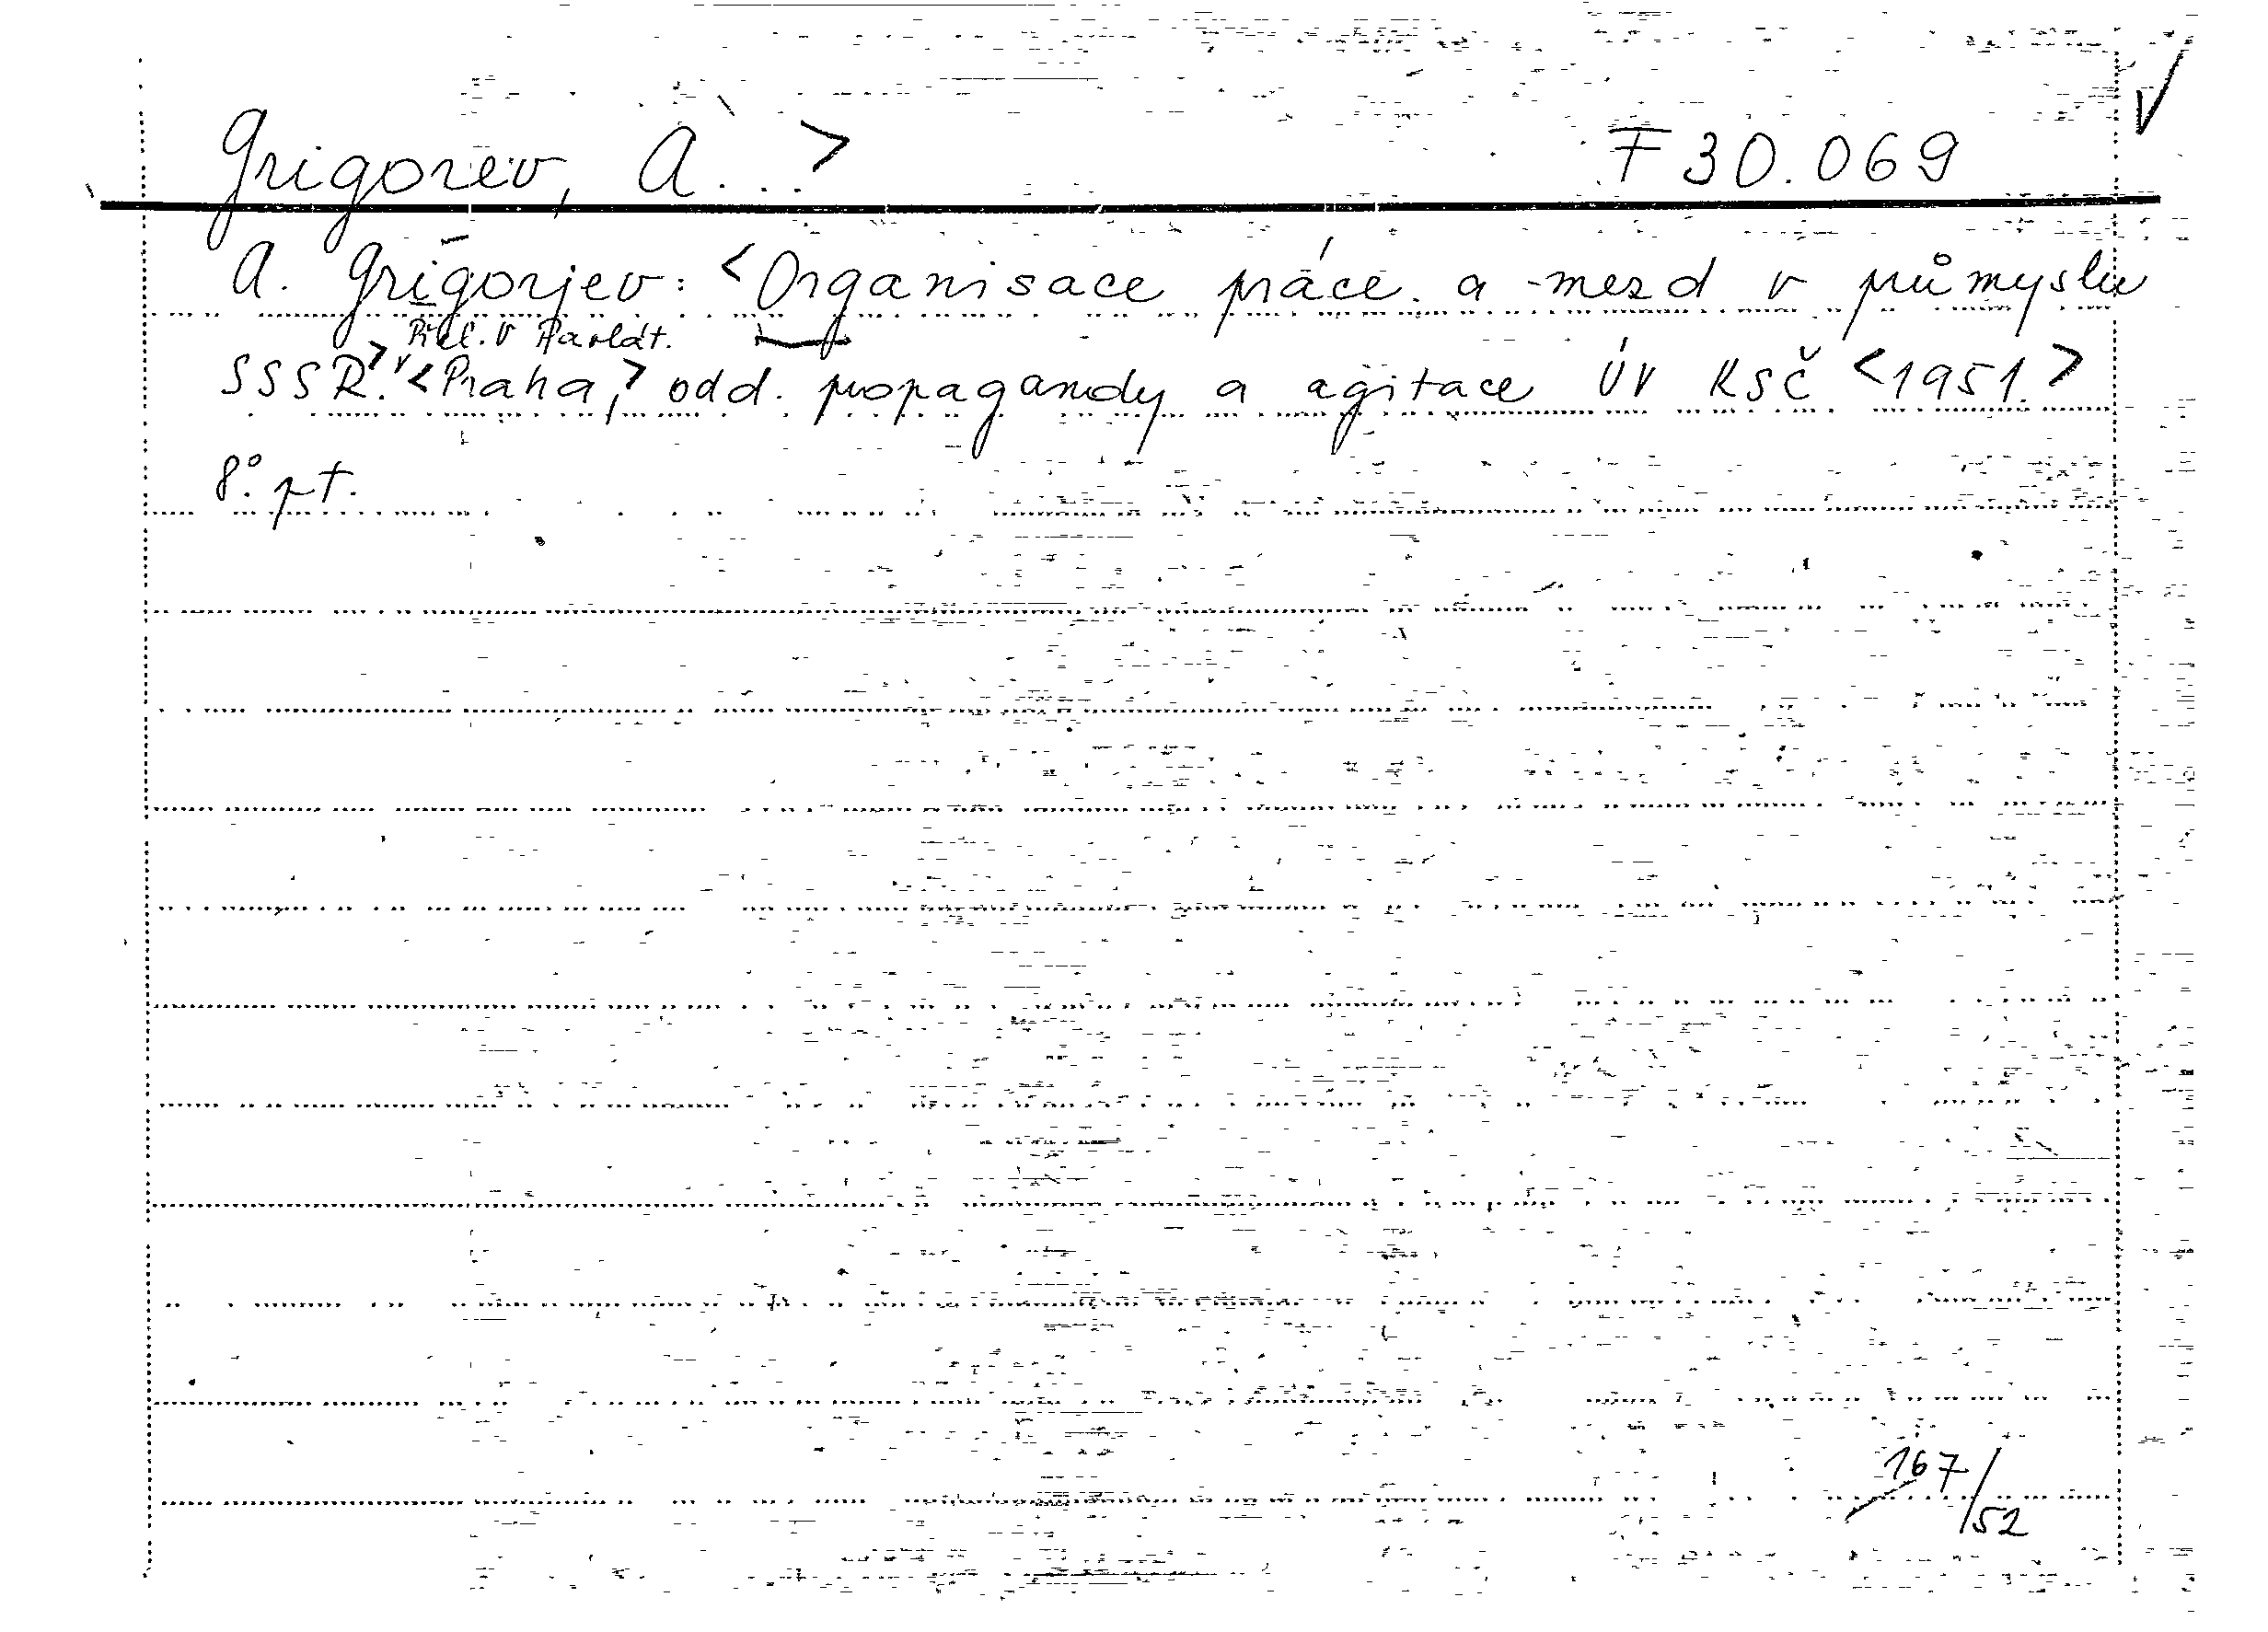 Grigorev, A...> F 30.069
A. Grigorjev: <Organisace práce a mezd v průmyslu
Přel. V
SSSR.> <Praha,> odd. propagandy a agitace ÚV KSČ <1951.>
8°. pt.
167/52